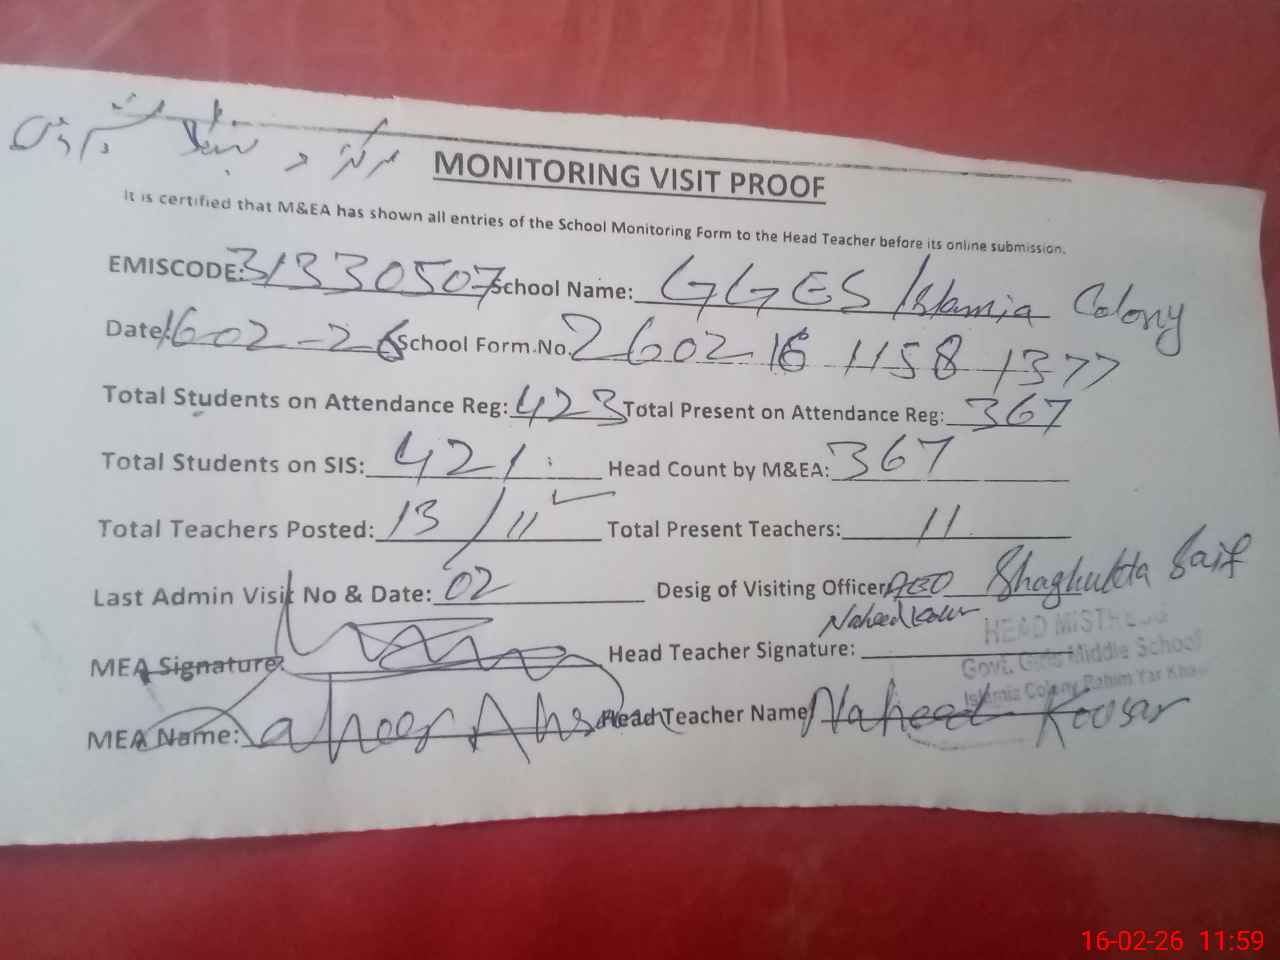 MONITORING VISIT PROOF
It is certified that M&EA has shown all entries of the School Monitoring Form to the Head Teacher before its online submission.
EMISCODE: 31330507 School Name: GGES Islamia Colony
Date: 1602-26 School Form.No. 2602 16 1158 1377
Total Students on Attendance Reg: 423 Total Present on Attendance Reg: 367
Total Students on SIS: 421 Head Count by M&EA: 367
Total Teachers Posted: 13/11 Total Present Teachers: 11
Last Admin Visit No & Date: 02 Desig of Visiting Officer AEO Shaghufta Saif
MEA Signature: Head Teacher Signature: Naheed
HEAD MISTRESS
Govt. Girls Middle School
Islamia Colony Rahim Yar Khan
MEA Name: Head Teacher Name Naheed Kousar
16-02-26 11:59